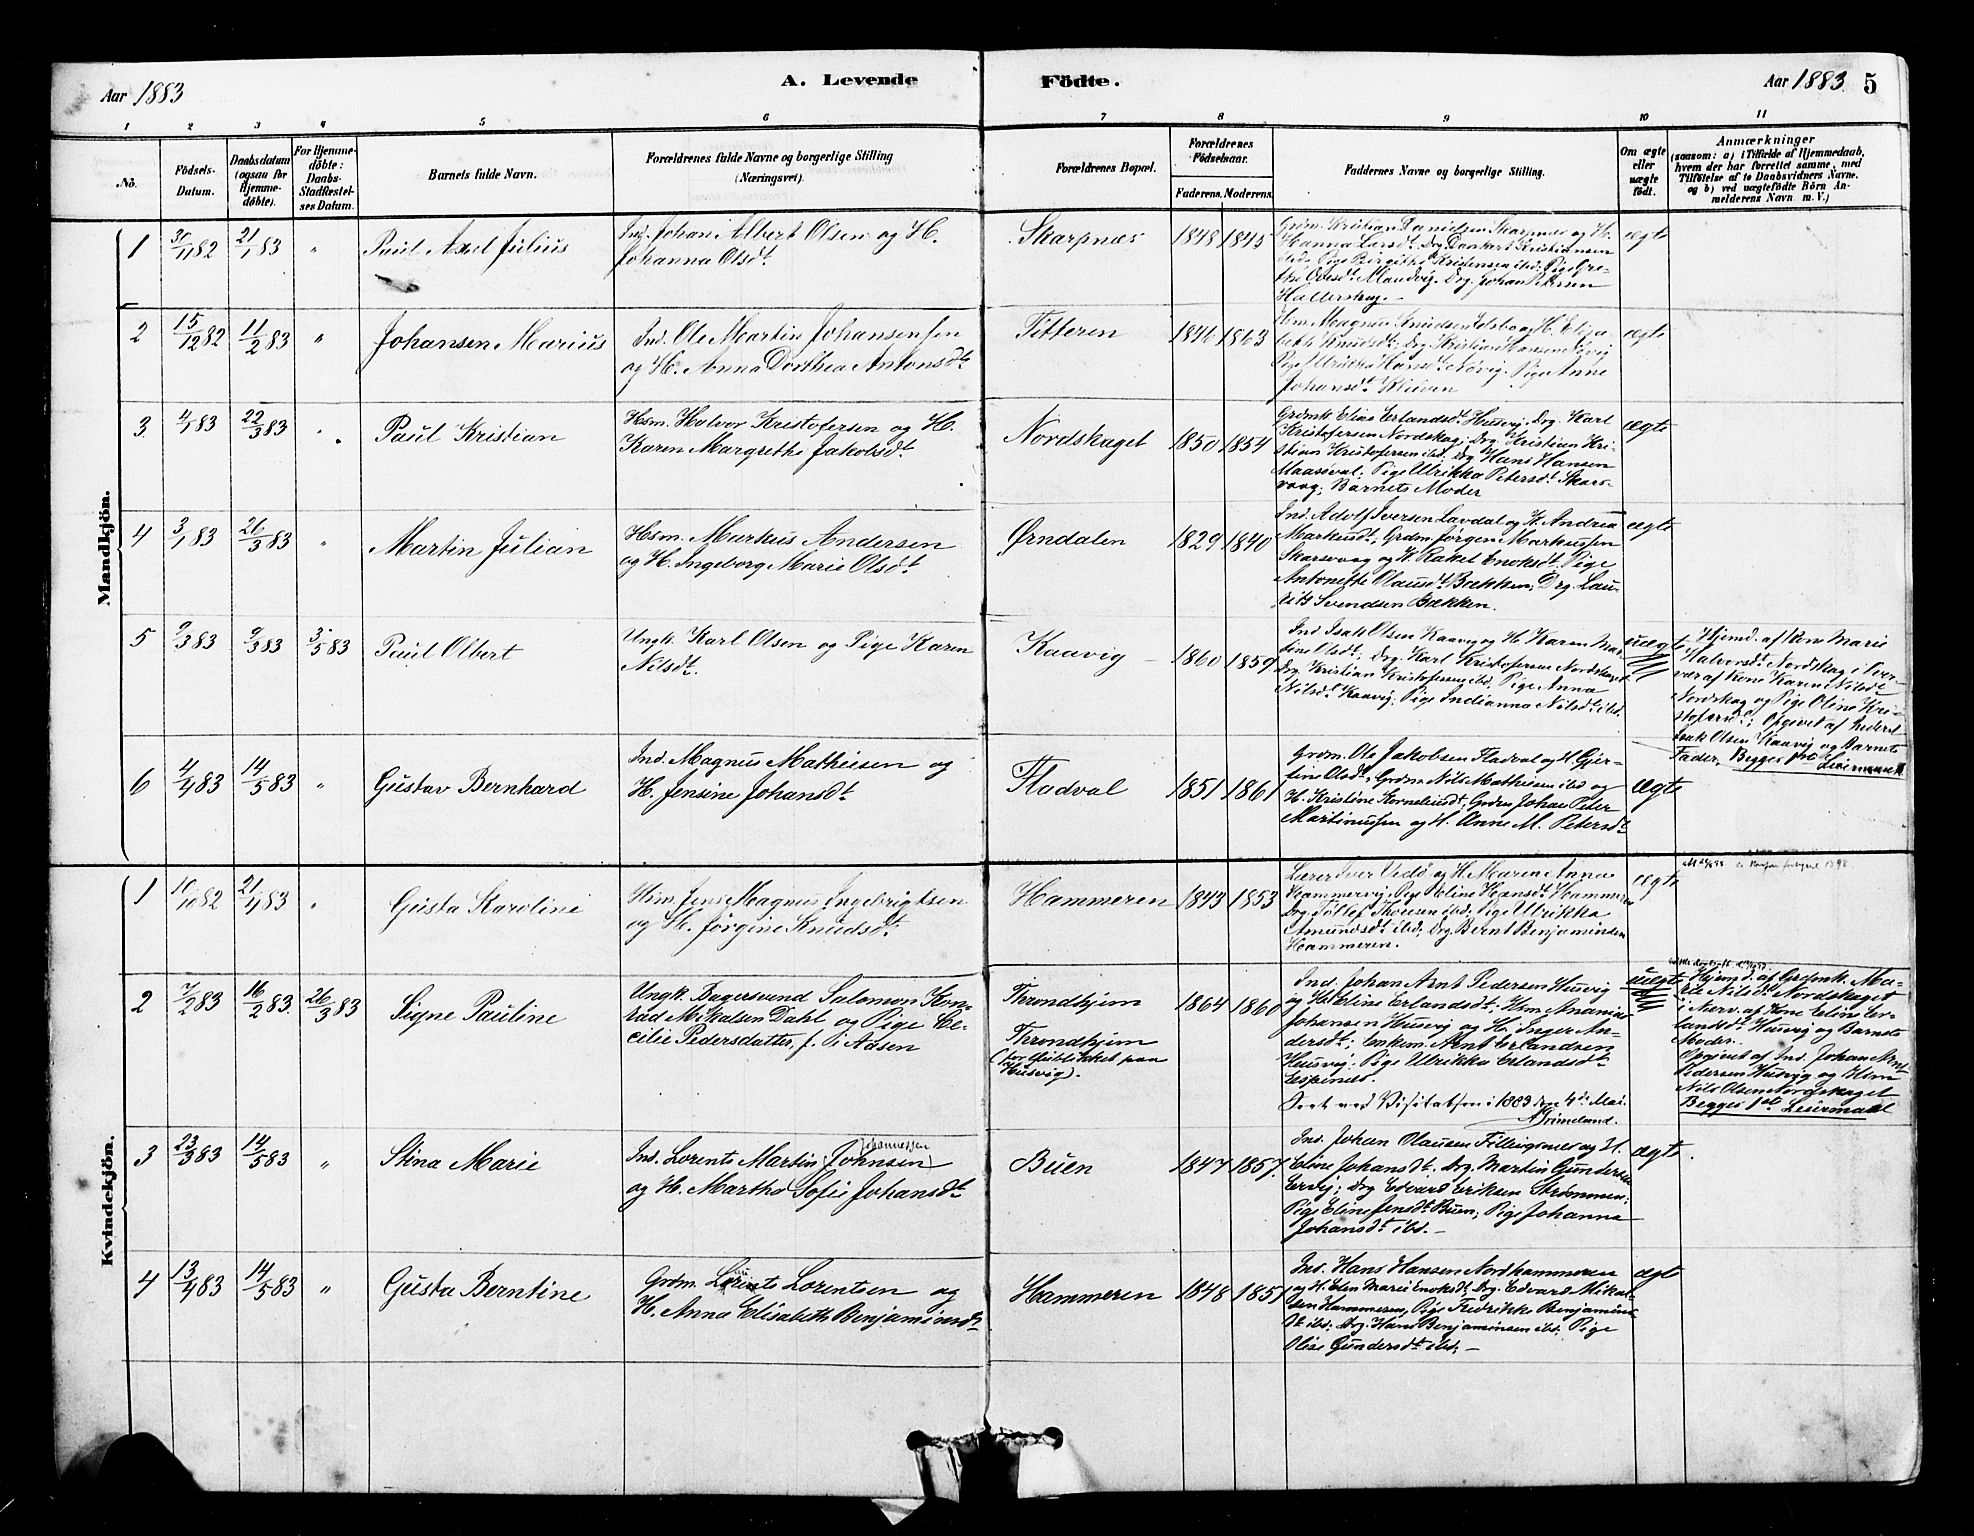 Aar 1883
A. Levende Födte.
Aar 1883. 5
1 2 3 4 5 6 7 8 9 10 11
No.
Födsels-Datum.
Daabsdatum (ogsaa for Hjemme-döbte).
For Hjemme-döbte: Daabs-Stadfæstel-ses Datum.
Barnets fulde Navn.
Forældrenes fulde Navne og borgerlige Stilling (Næringsvei).
Forældrenes Bopæl.
Forældrenes Födselsaar.
Faderens. Moderens.
Faddernes Navne og borgerlige Stilling.
Om ægte eller uægte födt.
Anmærkninger
(saasom: a) i Tilfælde af Hjemmedaab, hvem der har forrettet samme, med Tilföielse af to Daabsvidners Navne, og b) ved uægtefödte Börn An-melderens Navn m. V.)
Mandkjön.
1 30/11 82 21/1 83 " Paul Axel Julius
Ind. Johan Albert Olsen og H.
Johanna Olsdt.
Skarpnæs 1848 1845
Grdm. Kristian Danielsen Skarpnæs og H.
Hanna Larsdt. Drg. Dankert Kristiansen
ibid. Pige Birgitte Kristensen ibd. Pige Gre-
the Olsdt. Maudvig. Drg. Johan Petersen
ægte
2 15/12 82 11/2 83 " Johansen Marius
Ind. Ole Martin Johansen
og H. Anna Dorthea Antonsdt.
Titteren 1846 1863
Elisa-
beth Knudsdt; Drg. Kristian Hansen
Pige Anne
Johansdt.
ægte
3 4/1 83 22/3 83 " Paul Kristian
Hsm. Halvor Kristofersen og H.
Karen Margrethe Jakobsdt.
Nordskaget 1850 1854
Grdmk Eline Erlandsdt. Husvig; Drg. Karl
Kristofersen Nordskag; Drg. Kristian Kri-
stian Kristofersen ibd. Drg Hans Hansen
Maasøval; Pige Ulrikka Petersdt. Skars-
vaag; Barnets Moder
ægte
4 3/1 83 26/3 83 " Martin Julian
Hsm. Markus Andersen
og H. Ingeborg Marie Olsdt.
Ørndalen 1829 1840
Ind. Adolf Iversen Lavdal og H. Andrea
Markusdt; Grdm. Jørgen Markussen
Skarsvaag og H. Rakel Enoksdt; Pige
Antonette Olausdt. Bækken; Drg. Lau-
rits Svendsen Bækken.
ægte
5 9/3 83 9/3 83 3/5 83 Paul Olbert
Ungk. Karl Olsen og Pige Karen
Nilsdt.
Kaavig 1860 1859
Ind. Isak Olsen Kaavig og H. Karen Mar-
tine Olsdt; Drg. Karl Kristofersen Nordskaget
Drg. Kristian Kristofersen ibd; Pige Anna
Nilsdt. Kaavig; Pige Indianna Nilsdt. ibd.
uægte
Hjemd. af Kone Marie
Halvorsdt. Nordskag i Over-
vær af Kone Karen Nilsdt.
Nordskag og Pige Oline Kri-
stofersdt; Opgivet af Inderst
Isak Olsen Kaavig og Barnets
Fader. Begges 1ste Leiermaal
6 4/4 83 14/5 83 " Gustav Bernhard
Ind. Magnus Mathisen og
H. Jensine Johansdt.
Fladval 1851 1861
Grdm. Ole Jakobsen Fladval og H. Gjer-
tine Olsdt; Grdm. Nils Mathisen ibd og
H. Kristine Korneliusdt; Grdm Johan Peter
Martinussen og H. Anne M. Petersdt.
ægte
Kvindekjön.
1 10/10 82 21/1 83 " Gusta Karoline
Hsm. Jens Magnus Ingebrigtsen
og H. Jørgine Knudsdt.
Hammeren 1843 1853
Lærer Iver Vedø og H. Maren Anna
Hammervig; Pige Eline Hansdt. Hammeren
Drg. Tollef Thoresen ibd. Pige Ulrikka
Amundsdt. ibd; Drg. Bernt Benjaminsen
Hammeren.
ægte
2 7/2 83 16/2 83 26/3 83 Signe Pauline
Ungk. Bagersvend Salomon Kon-
rad Mikalsen Dahl og Pige Ce-
cilie Pedersdatter, f. i Aasen
Throndhjem
Throndhjem
(for Øieblikket paa
Husvig).
1864 1860
Ind. Johan Arnt Pedersen Husvig
og H. Eline Erlandsdt; Hsm. Ananias
Johansen Husvig og H. Inger An-
dersdt; Enkem. Arnt Erlandsen
Husvig; Pige Ulrikka Erlandsdt.
Espenes.
Seet ved Visitatsen i 1883 den 4de Mai.
Grimelund.
uægte
Hjemd. af Grdmk. Ma-
rie Nilsdt. Nordskaget
i Nærv. af Kone Eline Er-
landsdt. Husvig og Barnets
Moder.
Opgivet af Ind. Johan Arnt
Pedersen Husvig og Hsm
Nils Olsen Nordskaget
Begges 1ste Leiermaal
3 23/3 83 14/5 83 " Stina Marie
Johannessen
Ind. Lorents Martin Johnsen
og H. Martha Sofie Johansdt.
Buen 1847 1857.
Ind. Johan Olausen Fillingsnes og H.
Eline Johansdt. Drg. Martin Gundersen
Ervig; Drg Edvard Eriksen Strømmen;
Pige Eline Jensdt. Buen; Pige Johanna
Johansdt ibd. –
ægte
4 13/4 83 14/5 83 " Gusta Berntine
Grdm. Lorents Lorentsen og
H. Anna Elisabeth Benjaminsdt.
Hammeren 1848 1851
Ind. Hans Hansen Nordhammeren
og H. Elen Marie Enoksdt; Drg. Edvard Mikal-
sen Hammeren; Pige Fredrikke Benjamins-
dt. ibd; Drg. Hans Benjaminsen ibd; Pige
Oline Gundersdt. ibd; –
ægte